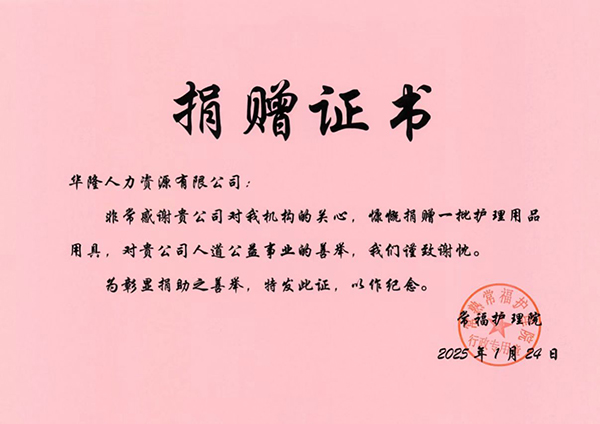 捐赠证书
华隆人力资源有限公司：
非常感谢贵公司对我机构的关心，慷慨捐赠一批护理用品
用具，对贵公司人道公益事业的善举，我们谨致谢忱。
为彰显捐助之善举，特发此证，以作纪念。
常福护理院
2025年1月24日
行政专用章